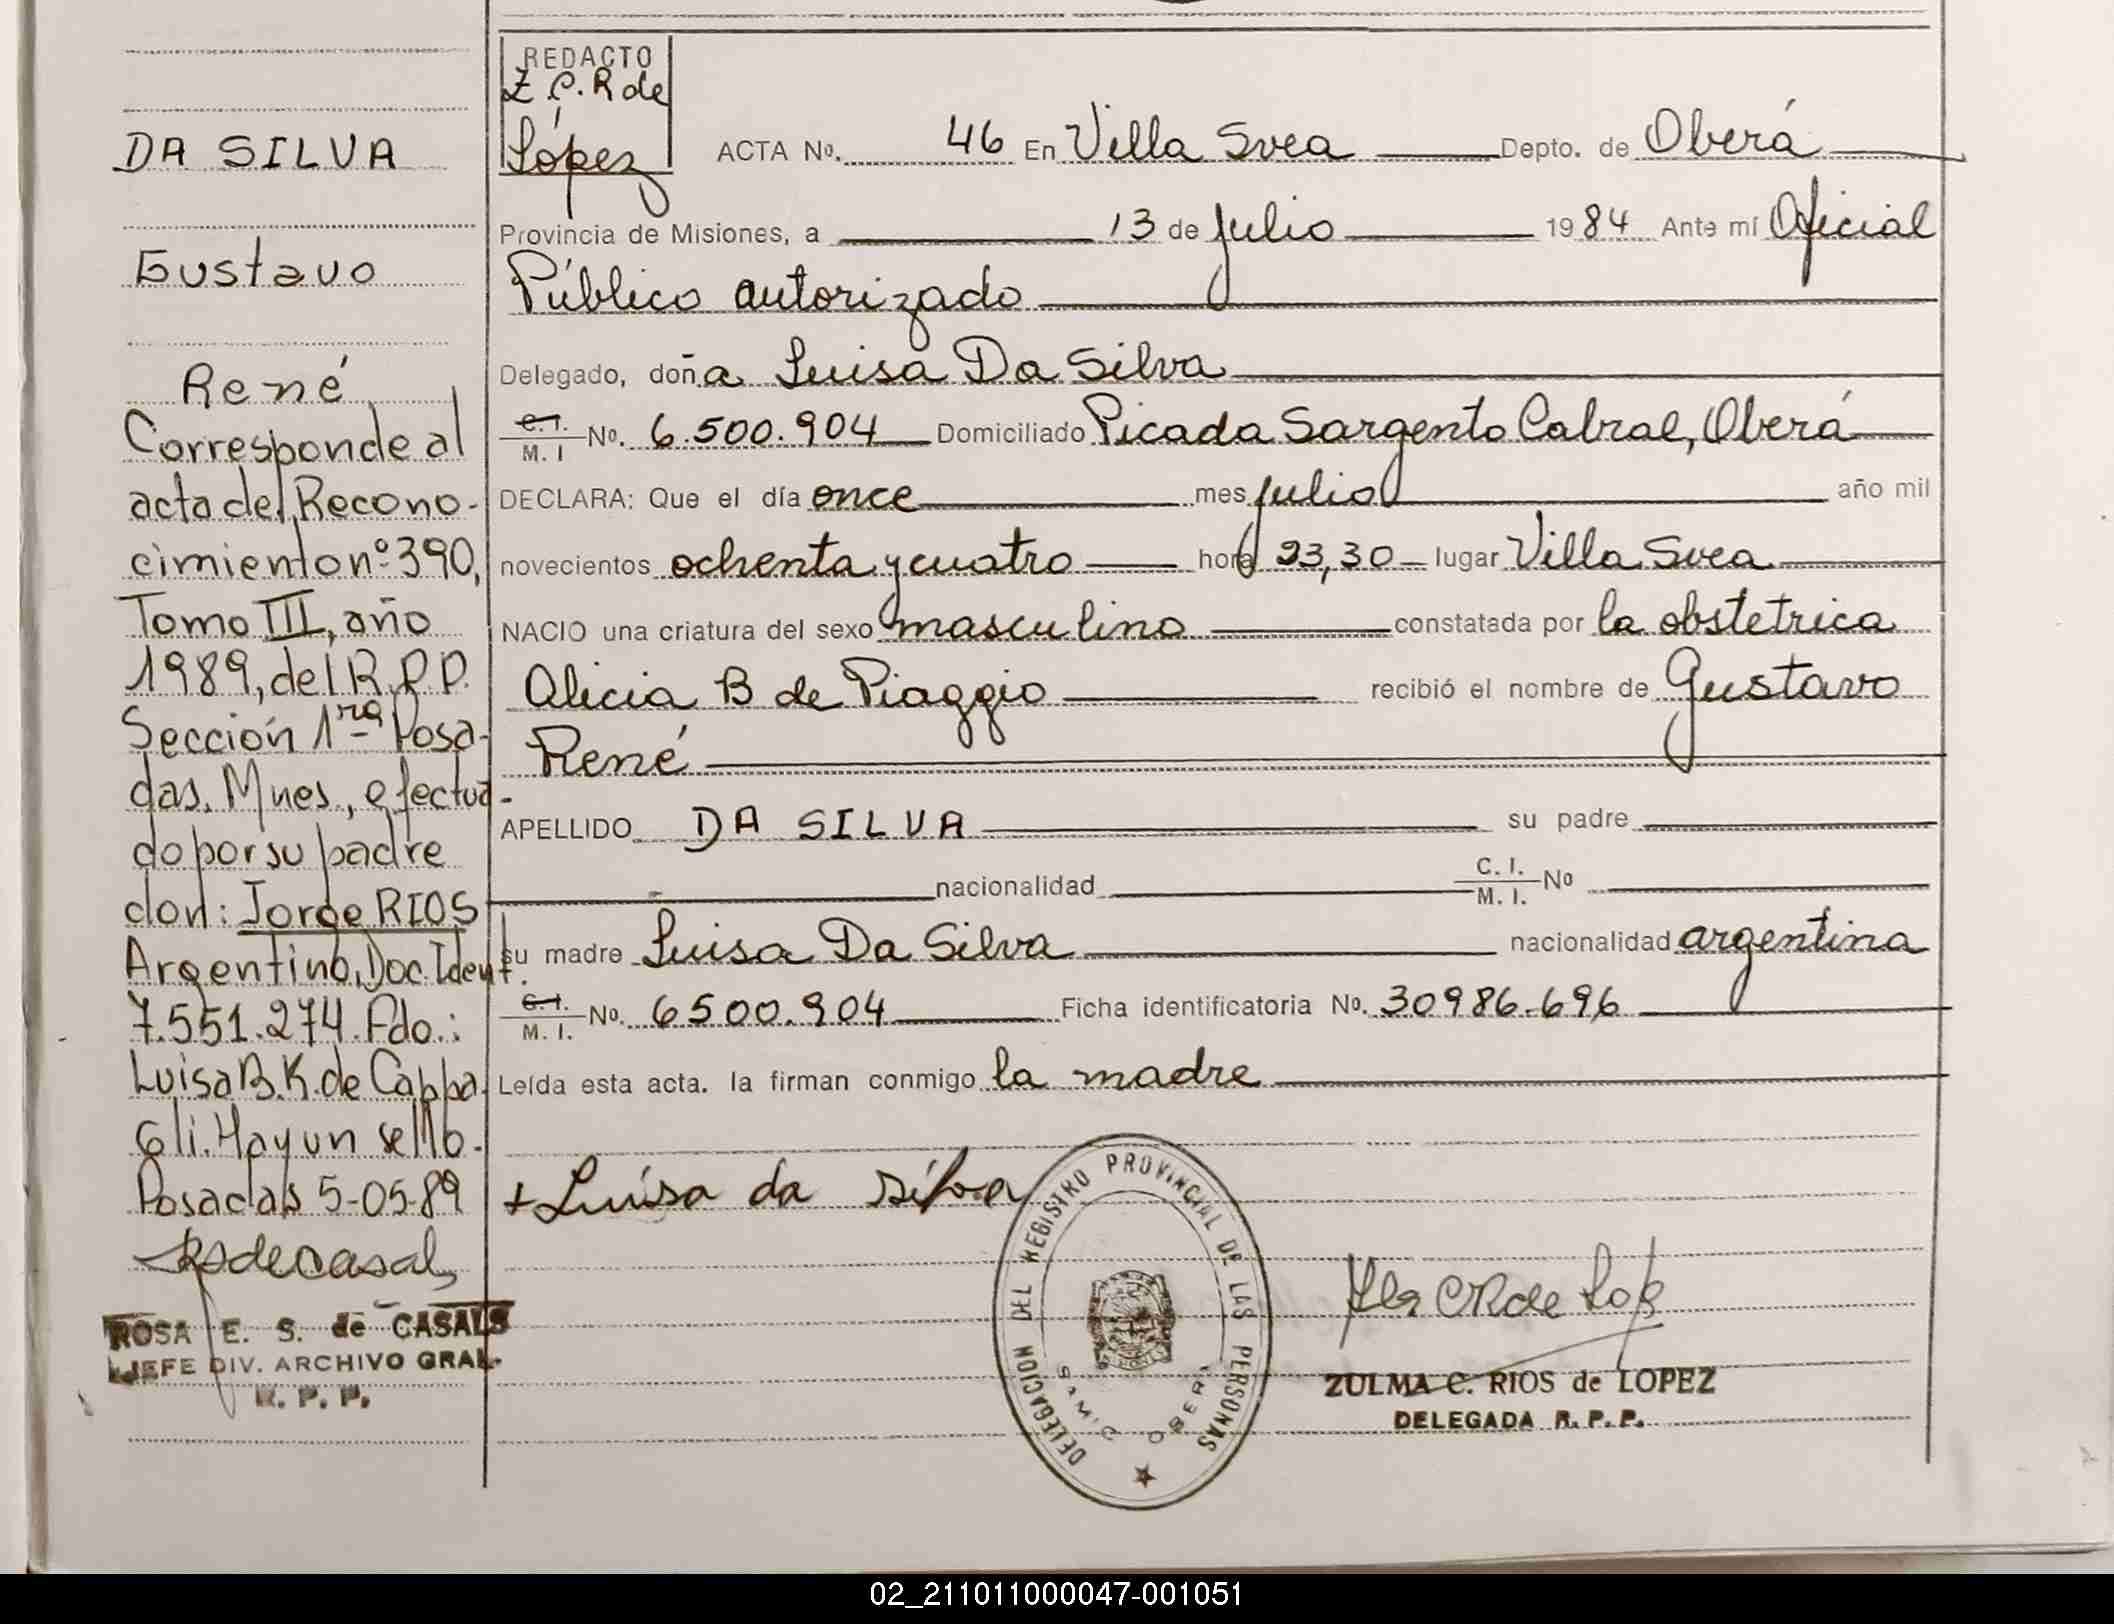 DA SILVA
Gustavo
René
Corresponde al
acta de Recono-
cimiento nº 390,
Tomo III, año
1989, del R.P.P.
Sección 1ra Posa-
das. Mnes., efectua-
do por su padre
don: Jorge RIOS
Argentino, Doc. Ident.
7.551.274. Fdo.:
Luisa B. K. de Cappa
Gli. Hay un sello.
Posadas 5-05-89
RSdeCasals
ROSA E. S. de CASALS
JEFE DIV. ARCHIVO GRAL.
R. P. P.
REDACTO
Z. C. R de
López
ACTA No. 46 En Villa Svea Depto. de Oberá
Provincia de Misiones, a 13 de julio 1984 Ante mí Oficial
Público autorizado
Delegado, doña Luisa Da Silva
C. I. / M. I No. 6.500.904 Domiciliado Picada Sargento Cabral, Oberá
DECLARA: Que el día once mes julio año mil
novecientos ochenta y cuatro hora 23,30 lugar Villa Svea
NACIO una criatura del sexo masculino constatada por la obstetrica
Alicia B de Piaggio recibió el nombre de Gustavo
René
APELLIDO DA SILVA su padre
nacionalidad C. I. / M. I. No
su madre Luisa Da Silva nacionalidad argentina
C. I. / M. I. No. 6500.904 Ficha identificatoria No. 30986.696
Leída esta acta. la firman conmigo la madre
+ Luísa da silva
DELEGACION DEL REGISTRO PROVINCIAL DE LAS PERSONAS
SAMIC OBERA
ZULMA C. RIOS de LOPEZ
DELEGADA R. P. P.
02_211011000047-001051